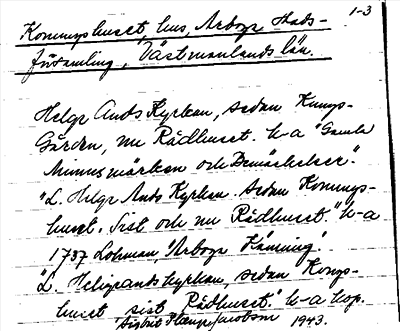 1-3
Konungshuset, hus, Arboga stads-
församling, Västmanlands län.
Helge Ands Kyrkan, sedan Kungs-
Gården, nu Rådhuset. k-a "Gamla
Minnesmärken och Bemärkelser".
"L. Helge Ands Kyrkan. Sedan Konungs-
huset. Sist och nu Rådhuset." k-a
1737 Lohman, "Arboga Känning".
"L. Heligandskyrkan, sedan Kongs-
huset sist Rådhuset." k-a kop.
1943.